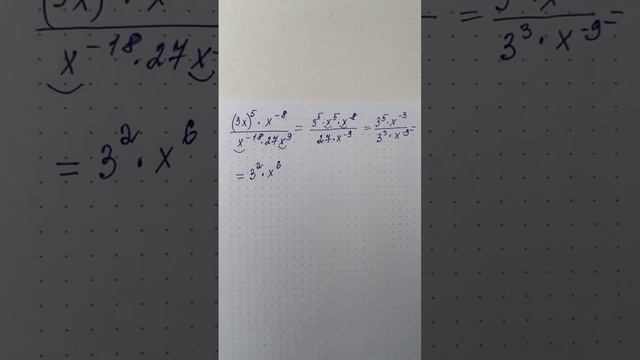 (3x)⁵ · x⁻⁸ / x⁻¹⁸ · 27x⁹ = 3⁵ · x⁵ · x⁻⁸ / 27 · x⁻⁹ = 3⁵ · x⁻³ / 3³ · x⁻⁹ =
= 3² · x⁶